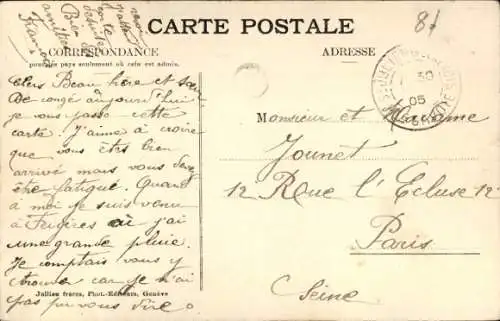 CARTE POSTALE
81
CORRESPONDANCE
pour les pays seulement où cela est admis.
ADRESSE
Chers Beau frère et sœur
De congé aujourd'hui
je vous passe cette
carte. J'aime à croire
que vous êtes bien
arrivé mais vous devez
être fatigué. Quand
à moi je suis venu
à où j'ai
une grande pluie.
Je comptais vous y
trouver car je n'ai
pas pu vous dire
amitiés
François
Monsieur et Madame
Jounet
12 Rue l'Ecluse 12
Paris
Seine
30
05
Jullien frères, Phot.-Editeurs, Genève